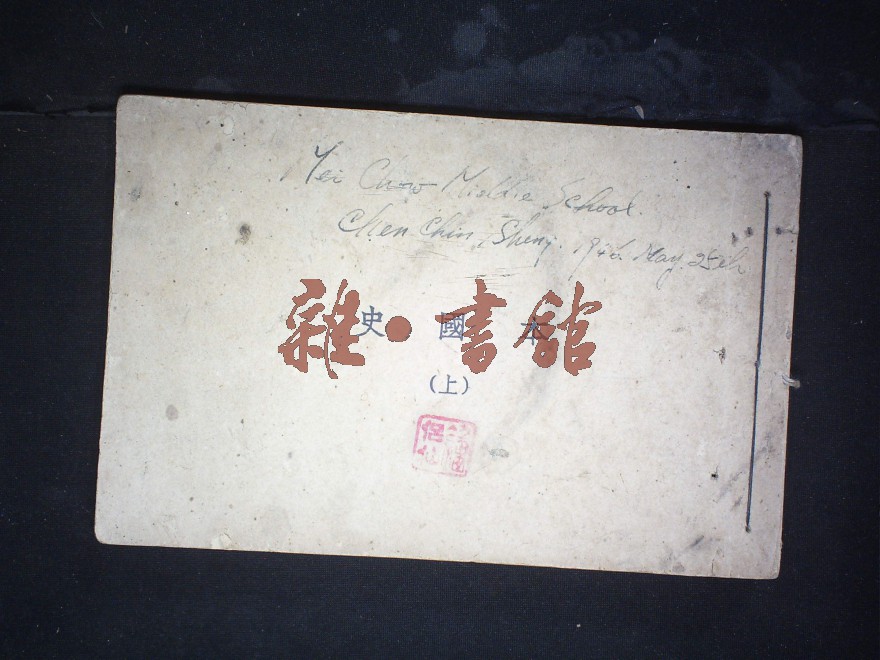 Mei Chow Middle School.
Chen Chin Sheng. 1946 May. 25th
雜·書舘
本國史
(上)